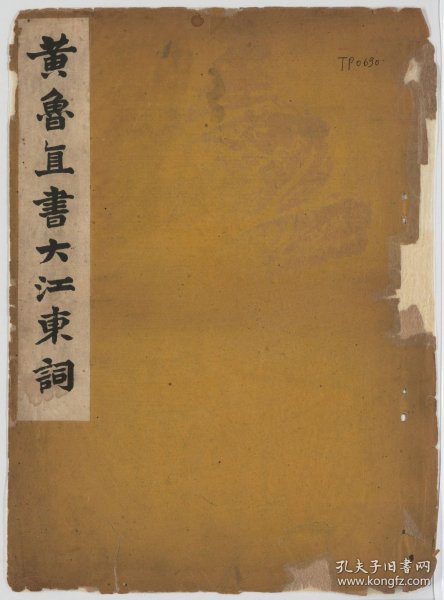 黄魯直書大江東詞
TP0690
孔夫子旧书网
www.kongfz.com